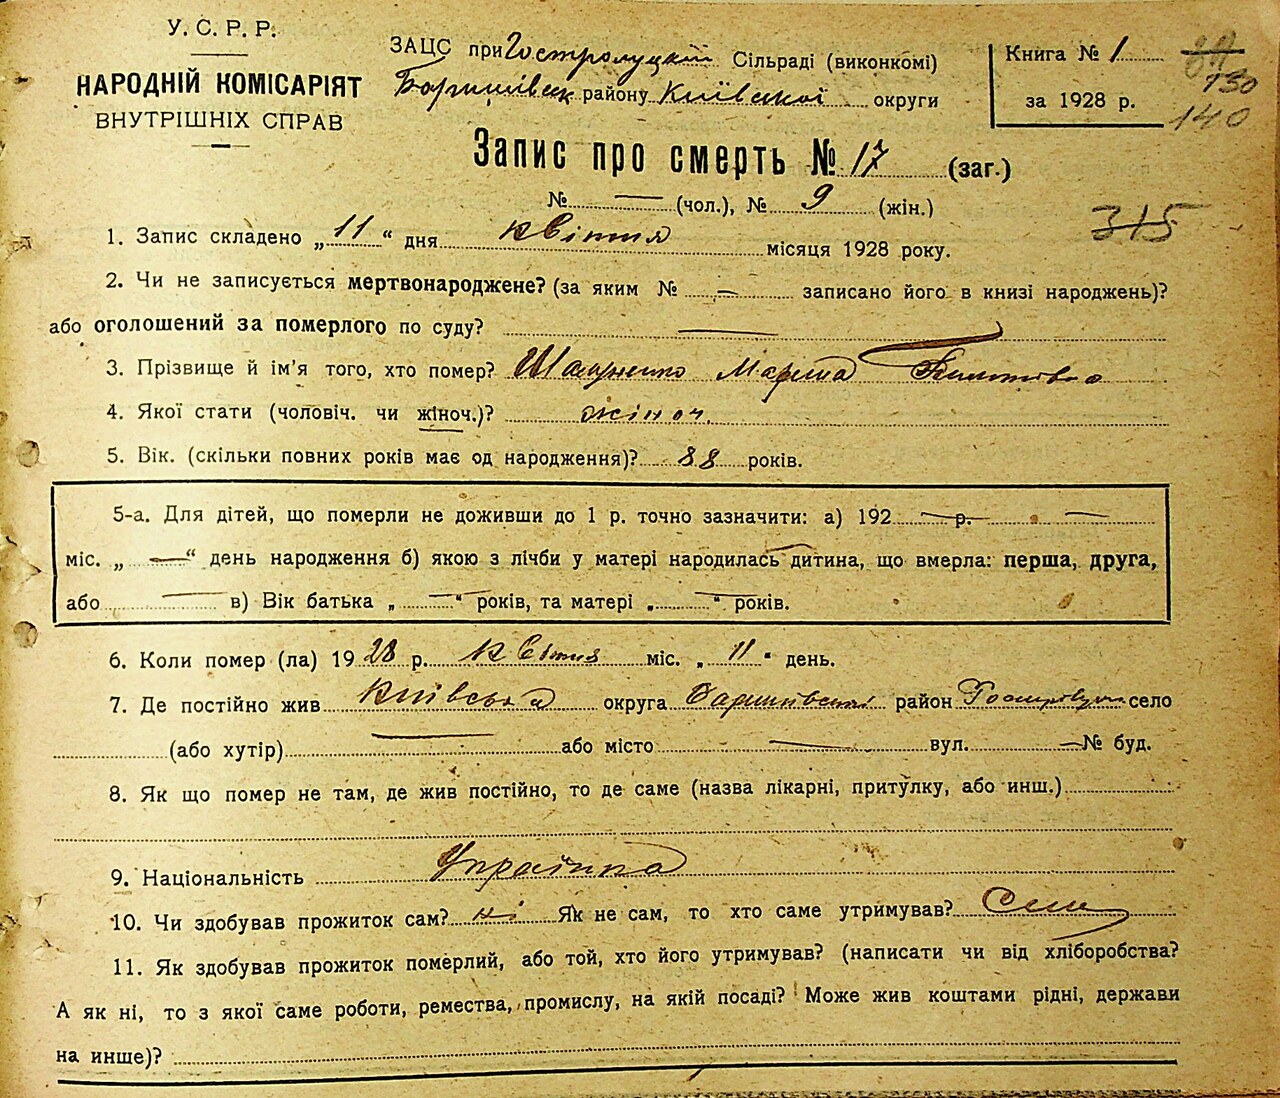 У. С. Р. Р.
НАРОДНІЙ КОМІСАРІЯТ
ВНУТРІШНІХ СПРАВ
ЗАЦС при Гостролуцкій Сільраді (виконкомі)
району Київської округи
Книга № 1
за 1928 р.
130
140
Запис про смерть № 17 (заг.)
№ — (чол.), № 9 (жін.)
315
1. Запис складено „ 11 “ дня квітня місяця 1928 року.
2. Чи не записується мертвонароджене? (за яким № — записано його в книзі народжень)?
або оголошений за померлого по суду? —
3. Прізвище й ім'я того, хто помер? Марина
4. Якої стати (чоловіч. чи жіноч.)? жіноч.
5. Вік. (скільки повних років має од народження)? 88 років.
5-а. Для дітей, що померли не доживши до 1 р. точно зазначити: а) 192 — р. —
міс. „ — “ день народження б) якою з лічби у матері народилась дитина, що вмерла: перша, друга,
або — в) Вік батька „ — “ років, та матері „ — “ років.
6. Коли помер (ла) 19 28 р. квітня міс. „ 11 “ день.
7. Де постійно жив Київська округа район село
(або хутір) — або місто — вул. — № буд.
8. Як що помер не там, де жив постійно, то де саме (назва лікарні, притулку, або инш.)
9. Національність Українка
10. Чи здобував прожиток сам? ні Як не сам, то хто саме утримував? Син
11. Як здобував прожиток померлий, або той, хто його утримував? (написати чи від хліборобства?
А як ні, то з якої саме роботи, ремества, промислу, на якій посаді? Може жив коштами рідні, держави
на инше)?